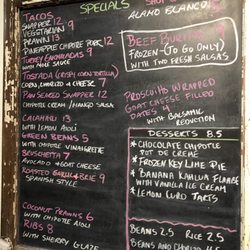 SPECIALS
TACOS
SNAPPER 12 9
VEGETARIAN 9
PRAWN 13
PINEAPPLE CHIPOTLE PORK 12
TURKEY ENCHILADAS 9
WITH MOLE SAUCE
TOSTADA (CRISPY CORN TORTILLA)
CORN, CHARRED & CHEESE 7
PAN SEARED SNAPPER 12
CHIPOTLE CREAM / MANGO SALSA
CALAMARI 13
WITH LEMON AIOLI
GREEN BEANS 5
WITH CHIPOTLE VINAIGRETTE
BRUSCHETTA 7
AVOCADO & GOAT CHEESE
ROASTED GARLIC & BRIE 9
SPANISH STYLE
COCONUT PRAWNS 6
WITH CHIPOTLE AIOLI
RIBS 8
WITH SHERRY GLAZE
ALAMO BLANCO
BEEF BURRITOS 9
FROZEN-(TO GO ONLY)
WITH TWO FRESH SALSAS
PROSCIUTTO WRAPPED
GOAT CHEESE FILLED
DATES 9
WITH BALSAMIC
REDUCTION
DESSERTS 8.5
* CHOCOLATE CHIPOTLE
POT DE CREME
* FROZEN KEY LIME PIE
* BANANA KAHLUA FLAMBE
WITH VANILLA ICE CREAM
* LEMON CURD TARTS
BEANS 2.5 RICE 2.5
BEANS AND CHORIZO